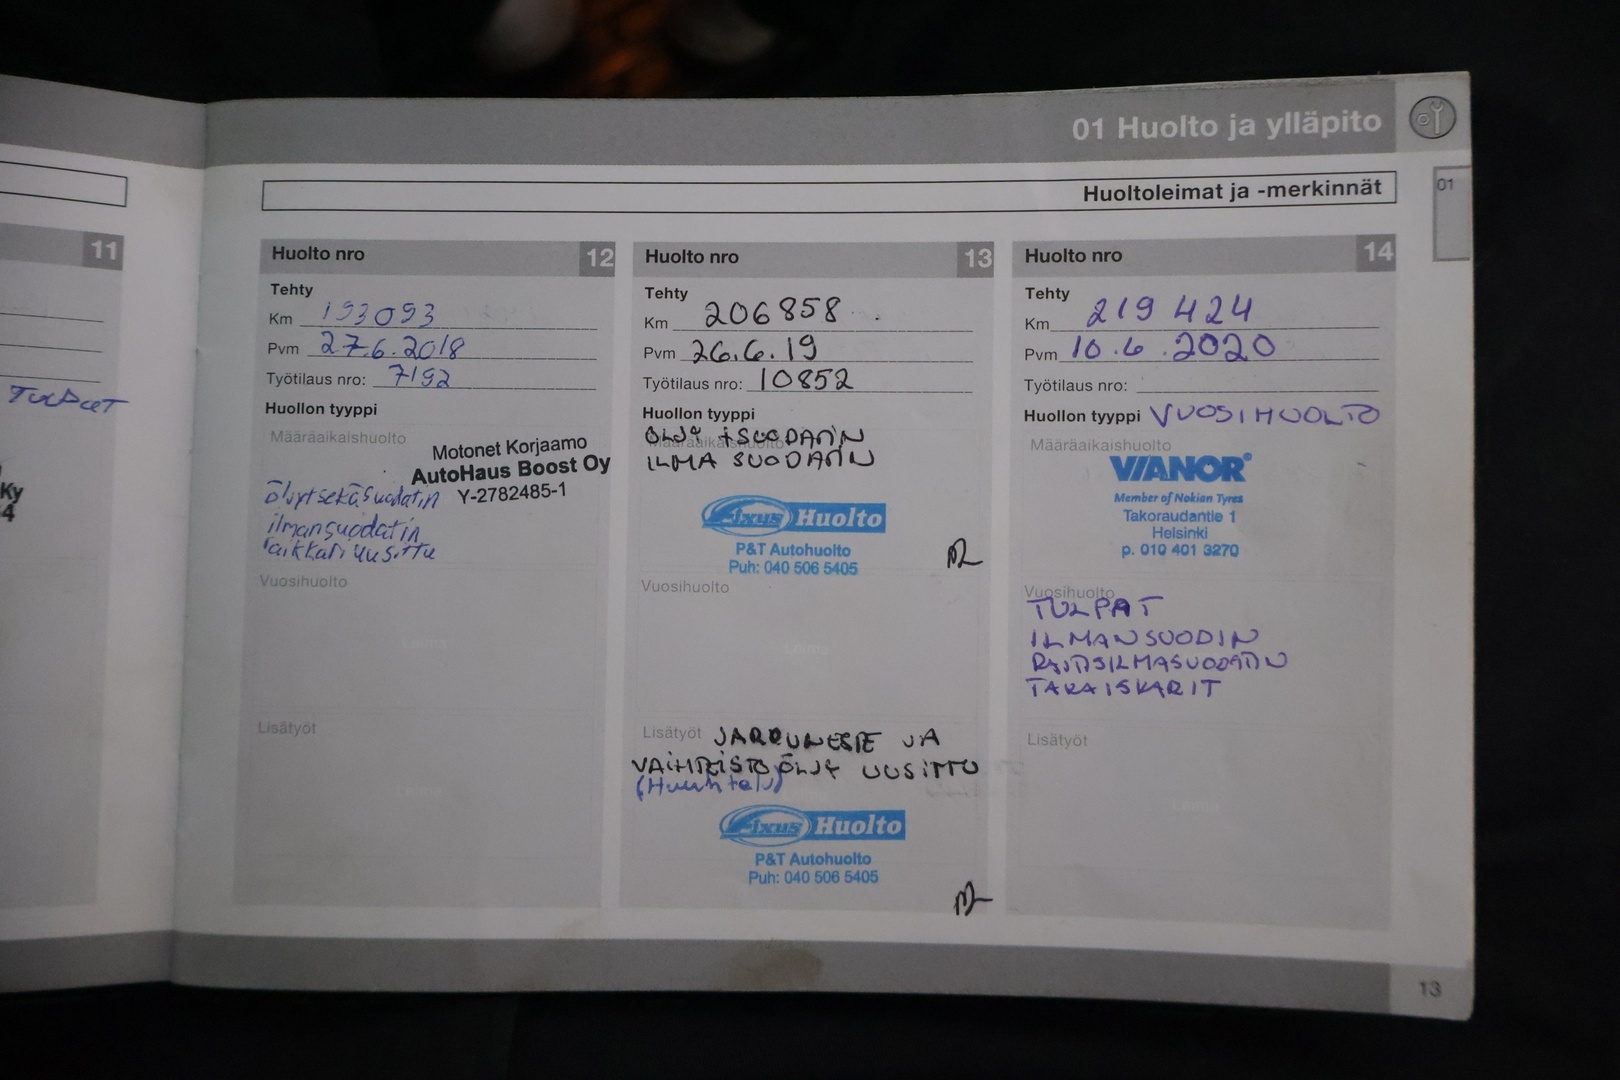 01 Huolto ja ylläpito
Huoltoleimat ja -merkinnät
01
11
TULPAT
Ky
4
Huolto nro 12
Tehty
Km 193093
Pvm 27.6.2018
Työtilaus nro: 7192
Huollon tyyppi
Määräaikaishuolto
Motonet Korjaamo
AutoHaus Boost Oy
Y-2782485-1
öljyt sekä suodatin
ilmansuodatin
raikkari uusittu
Vuosihuolto
Leima
Lisätyöt
Leima
Huolto nro 13
Tehty
Km 206858
Pvm 26.6.19
Työtilaus nro: 10852
Huollon tyyppi
ÖLJY + SUODATIN
Määräaikaishuolto
ILMA SUODATIN
Fixus Huolto
P&T Autohuolto
Puh: 040 506 5405
Vuosihuolto
Leima
Lisätyöt JARRUNESTE JA
VAIHTEISTOÖLJY UUSITTU
(Huuhtelu)
Fixus Huolto
P&T Autohuolto
Puh: 040 506 5405
Huolto nro 14
Tehty
Km 219 424
Pvm 10.6.2020
Työtilaus nro:
Huollon tyyppi VUOSIHUOLTO
Määräaikaishuolto
VIANOR
Member of Nokian Tyres
Takoraudantie 1
Helsinki
p. 010 401 3270
Vuosihuolto
TULPAT
ILMANSUODIN
RAITISILMASUODATIN
TAKAISKARIT
Lisätyöt
Leima
13